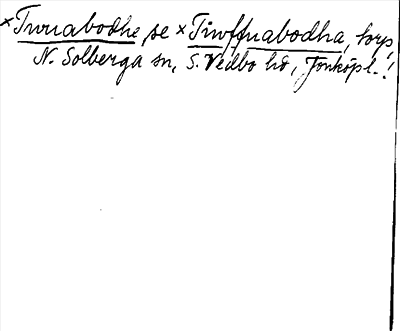 ×Twuabodhe, se ×Tiwffuabodha, torp,
N. Solberga sn, S. Vedbo hd, Jönköp l.!